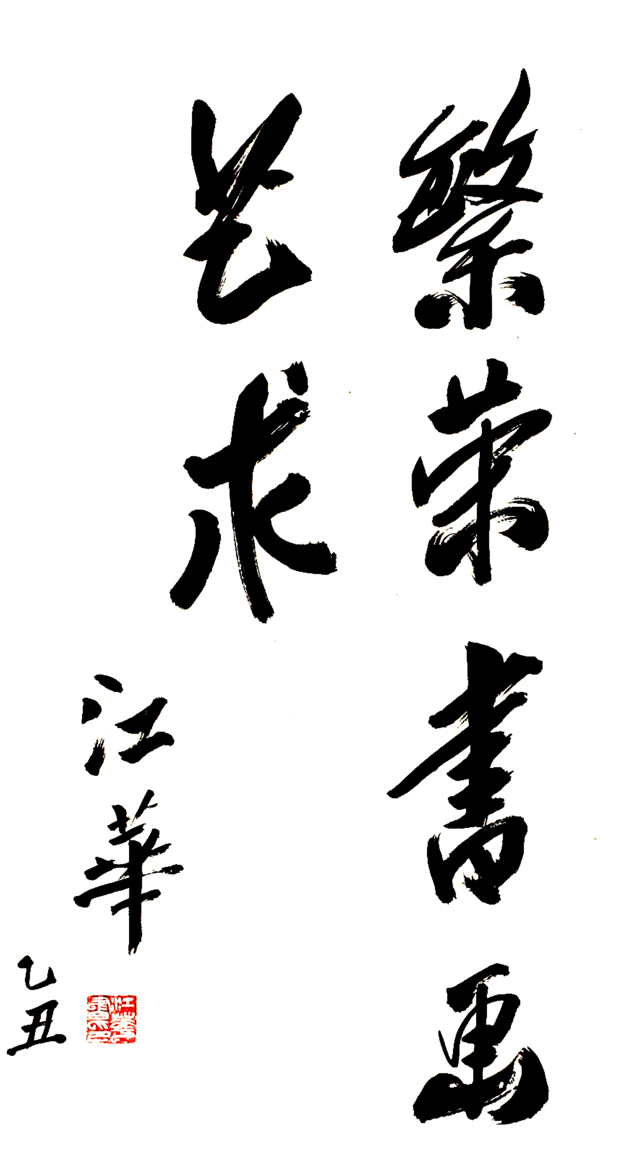 繁荣書画
艺术
江華
乙丑